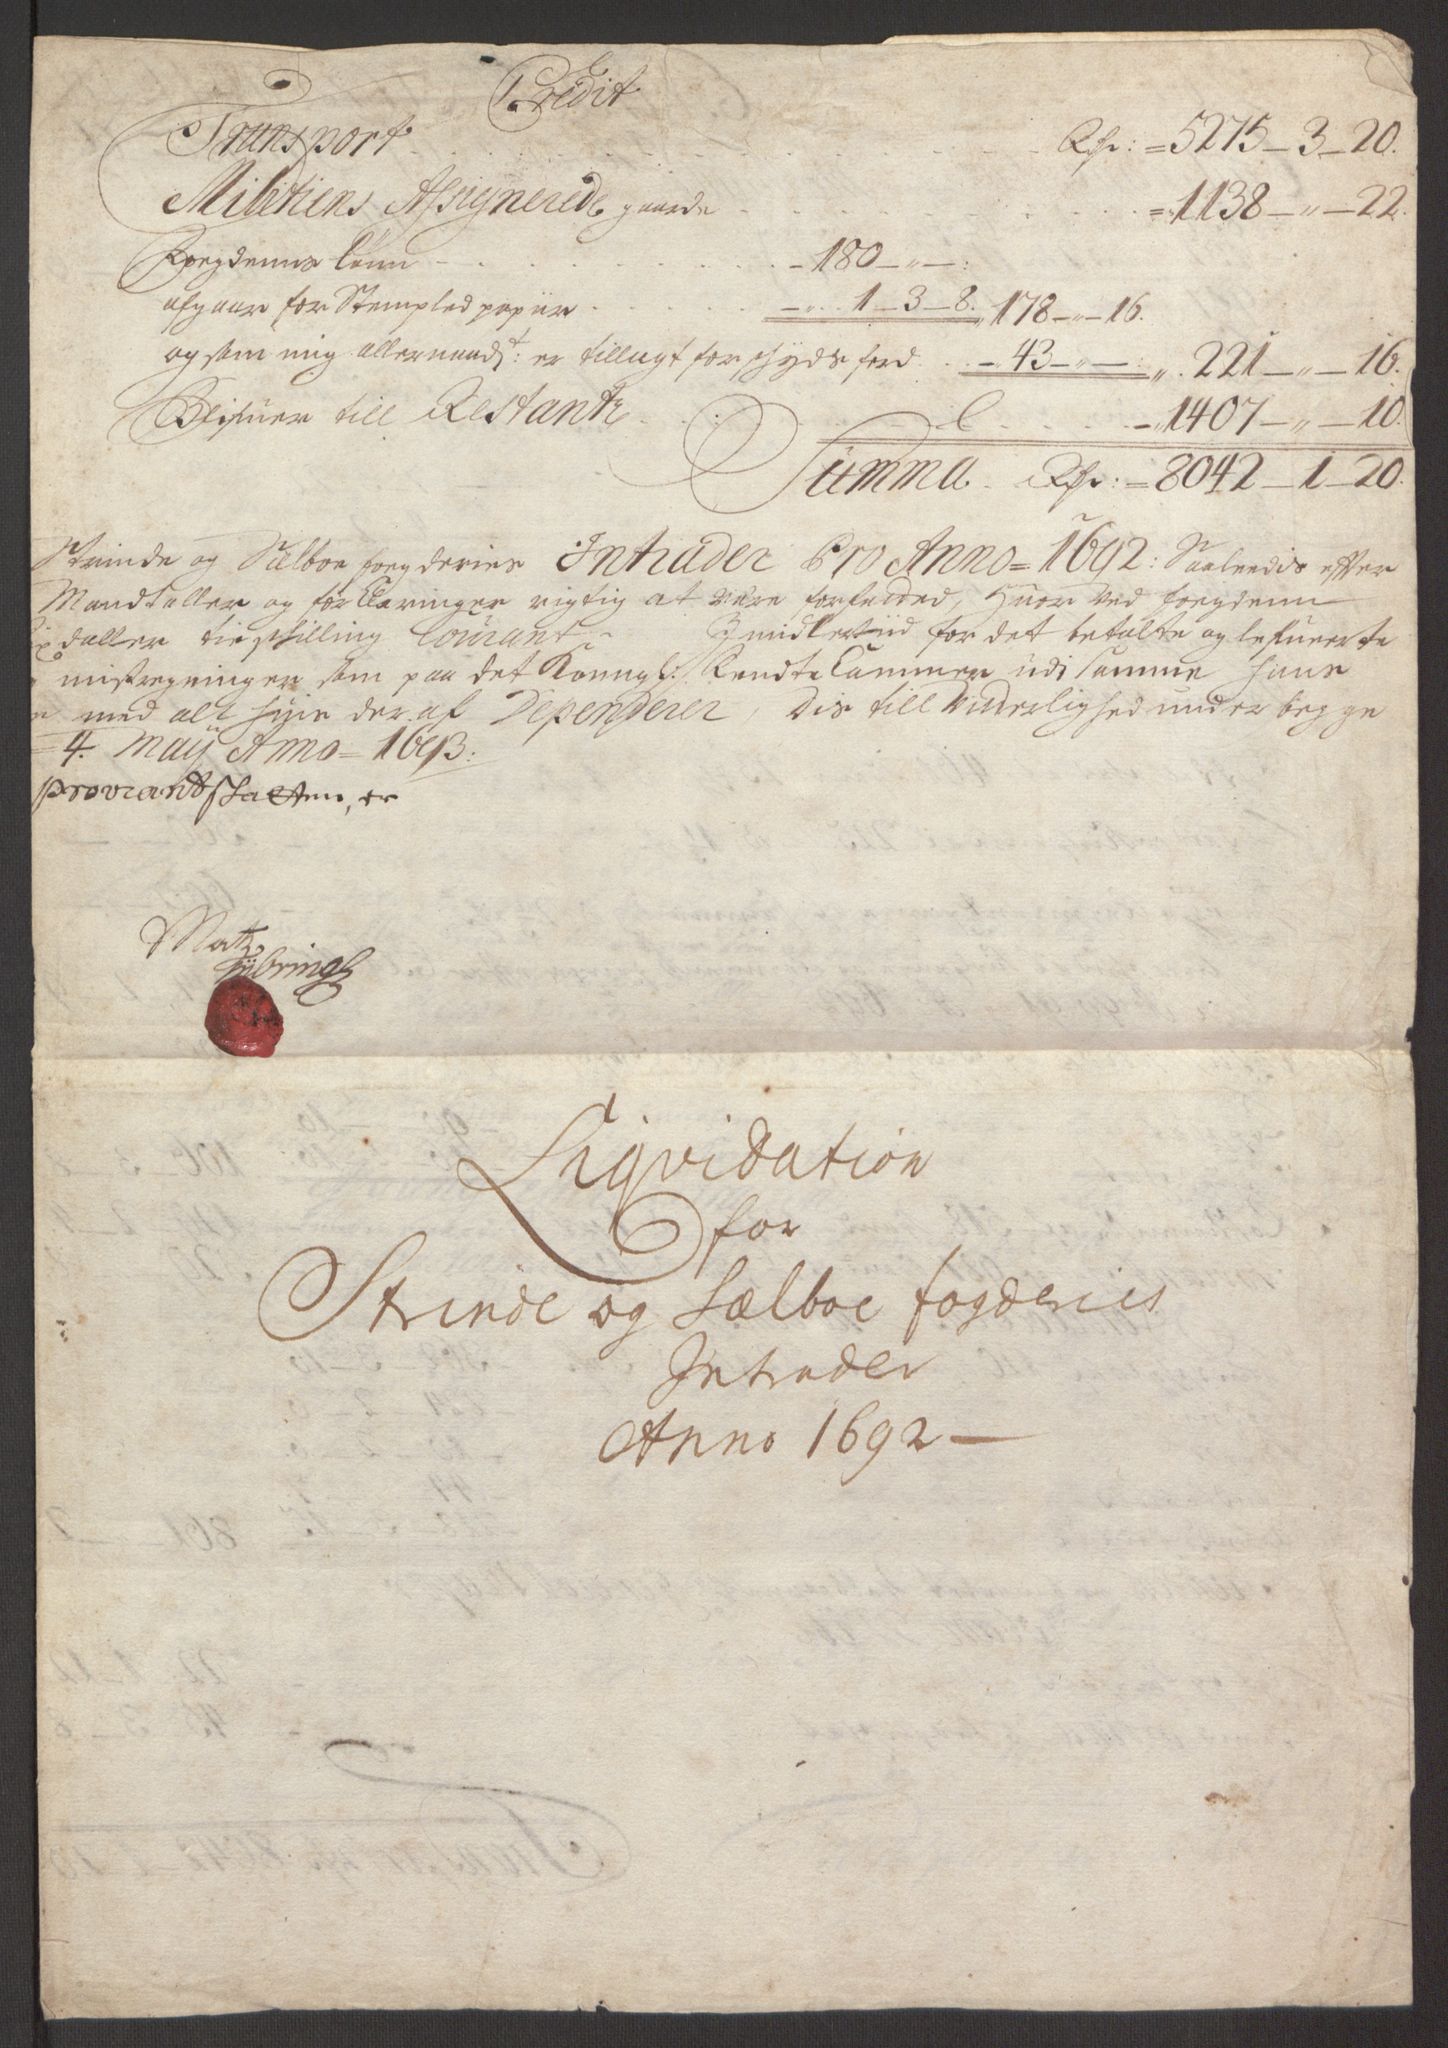 Credit
Transport. Rdr: = 5275 – 3 – 20.
Militiens Assignerede gaarde = 1138 – " – 22.
Foegdenns Lønn – 180 – " – :
afgaar for Stempled papiir – ". 1 – 3 – 8. " 178 – " – 16.
og som mig allernaadst: er tillagt for schydsferd – " 43 – " – : ". 221 – " – 16.
Blifuer till Restantz – " 1407 – " – 10.
Summa. Rdr: = 8042 – 1 – 20.
Strinde og Sælboe foegderies Intrader Pro Anno = 1692: Saaleedis effter
Mandtaller og forklaringer rigtig at være forfatted, Huor ved foegdenn
daller tieschilling Courant – Imidlertiid for det betalte og lefuerte
misregninger som paa det Konngl: Rendte Cammer udi samme hans
med alt huis der af Dependerer, Dis till Vitterlighed under begge
4. Maij Anno = 1693:
proviantskatten, er
Matz
Hübringh
Liqvidation
for
Strinde og Sælboe fogderies
Intrader
Anno 1692 –